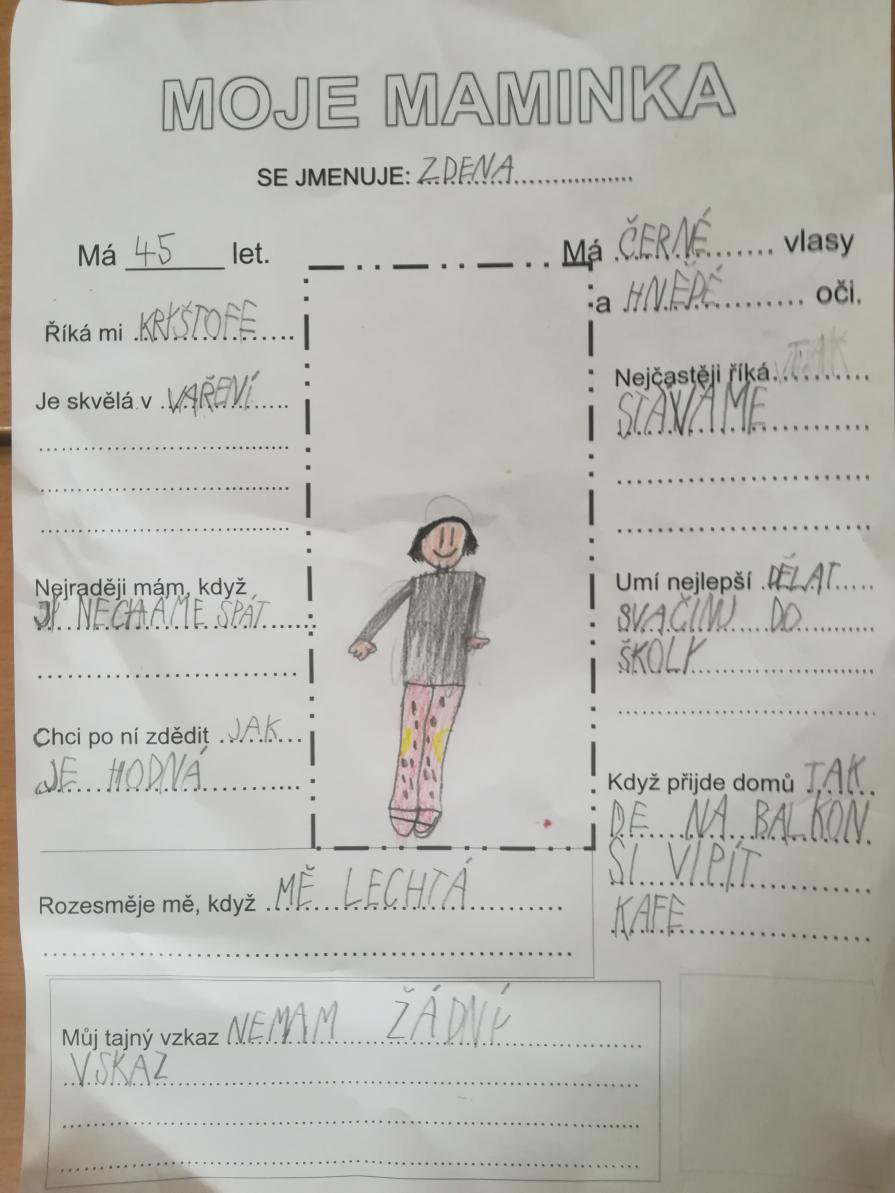 MOJE MAMINKA
SE JMENUJE: ZDENA
Má 45 let.
Má ČERNÉ vlasy
a HNĚDÉ oči.
Říká mi KRYŠTOFE
Je skvělá v VAŘENÍ
Nejraději mám, když
JI NECHÁME SPÁT
Chci po ní zdědit JAK
JE HODNÁ
Nejčastěji říká
STÁVÁME
Umí nejlepší DĚLAT
SVAČINU DO
ŠKOLY
Když přijde domů TAK
DE NA BALKON
SI VIPÍT
KAFE
Rozesměje mě, když MĚ LECHTÁ
Můj tajný vzkaz NEMAM ŽÁDNÝ
VSKAZ